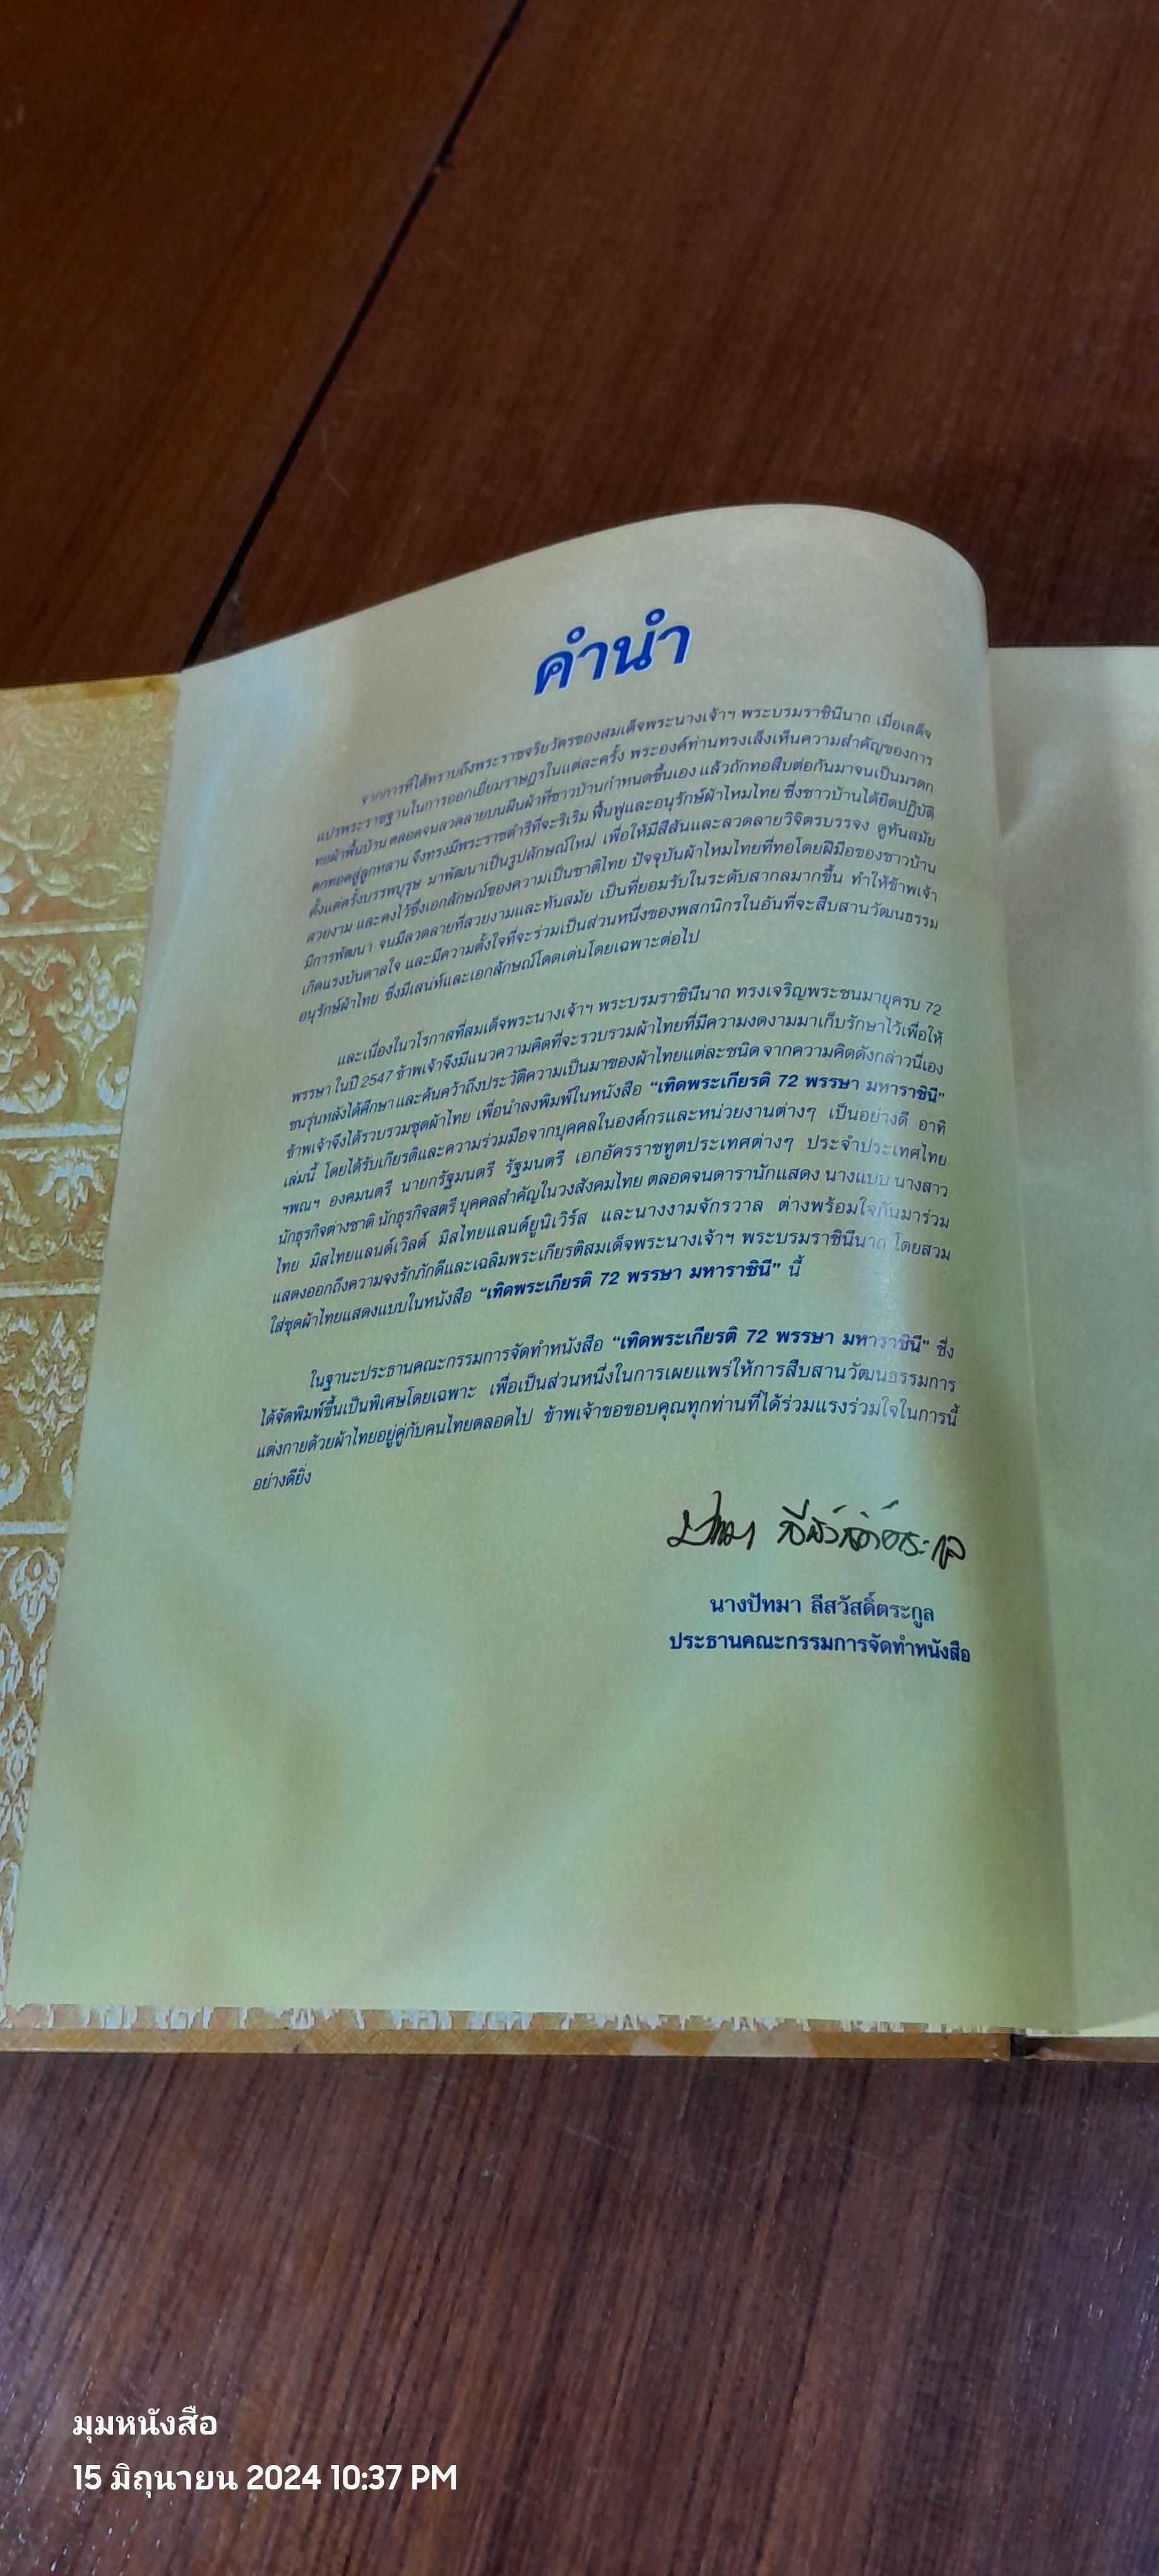 คำนำ
จากการที่ได้ทราบถึงพระราชจริยวัตรของสมเด็จพระนางเจ้าฯ พระบรมราชินีนาถ เมื่อเสด็จ
แปรพระราชฐานในการออกเยี่ยมราษฎรในแต่ละครั้ง พระองค์ท่านทรงเล็งเห็นความสำคัญของการ
ทอผ้าพื้นบ้าน ตลอดจนลวดลายบนผืนผ้าที่ชาวบ้านกำหนดขึ้นเอง แล้วถักทอสืบต่อกันมาจนเป็นมรดก
ตกทอดสู่ลูกหลาน จึงทรงมีพระราชดำริที่จะริเริ่ม ฟื้นฟูและอนุรักษ์ผ้าไหมไทย ซึ่งชาวบ้านได้ยึดปฏิบัติ
ตั้งแต่ครั้งบรรพบุรุษ มาพัฒนาเป็นรูปลักษณ์ใหม่ เพื่อให้มีสีสันและลวดลายวิจิตรบรรจง ดูทันสมัย
สวยงาม และคงไว้ซึ่งเอกลักษณ์ของความเป็นชาติไทย ปัจจุบันผ้าไหมไทยที่ทอโดยฝีมือของชาวบ้าน
มีการพัฒนา จนมีลวดลายที่สวยงามและทันสมัย เป็นที่ยอมรับในระดับสากลมากขึ้น ทำให้ข้าพเจ้า
เกิดแรงบันดาลใจ และมีความตั้งใจที่จะร่วมเป็นส่วนหนึ่งของพสกนิกรในอันที่จะสืบสานวัฒนธรรม
อนุรักษ์ผ้าไทย ซึ่งมีเสน่ห์และเอกลักษณ์โดดเด่นโดยเฉพาะต่อไป
และเนื่องในวโรกาสที่สมเด็จพระนางเจ้าฯ พระบรมราชินีนาถ ทรงเจริญพระชนมายุครบ 72
พรรษา ในปี 2547 ข้าพเจ้าจึงมีแนวความคิดที่จะรวบรวมผ้าไทยที่มีความงดงามมาเก็บรักษาไว้เพื่อให้
ชนรุ่นหลังได้ศึกษา และค้นคว้าถึงประวัติความเป็นมาของผ้าไทยแต่ละชนิด จากความคิดดังกล่าวนี้เอง
ข้าพเจ้าจึงได้รวบรวมชุดผ้าไทย เพื่อนำลงพิมพ์ในหนังสือ “เทิดพระเกียรติ 72 พรรษา มหาราชินี”
เล่มนี้ โดยได้รับเกียรติและความร่วมมือจากบุคคลในองค์กรและหน่วยงานต่างๆ เป็นอย่างดี อาทิ
ฯพณฯ องคมนตรี นายกรัฐมนตรี รัฐมนตรี เอกอัครราชทูตประเทศต่างๆ ประจำประเทศไทย
นักธุรกิจต่างชาติ นักธุรกิจสตรี บุคคลสำคัญในวงสังคมไทย ตลอดจนดารานักแสดง นางแบบ นางสาว
ไทย มิสไทยแลนด์เวิลด์ มิสไทยแลนด์ยูนิเวิร์ส และนางงามจักรวาล ต่างพร้อมใจกันมาร่วม
แสดงออกถึงความจงรักภักดีและเฉลิมพระเกียรติสมเด็จพระนางเจ้าฯ พระบรมราชินีนาถ โดยสวม
ใส่ชุดผ้าไทยแสดงแบบในหนังสือ “เทิดพระเกียรติ 72 พรรษา มหาราชินี” นี้
ในฐานะประธานคณะกรรมการจัดทำหนังสือ “เทิดพระเกียรติ 72 พรรษา มหาราชินี” ซึ่ง
ได้จัดพิมพ์ขึ้นเป็นพิเศษโดยเฉพาะ เพื่อเป็นส่วนหนึ่งในการเผยแพร่ให้การสืบสานวัฒนธรรมการ
แต่งกายด้วยผ้าไทยอยู่คู่กับคนไทยตลอดไป ข้าพเจ้าขอขอบคุณทุกท่านที่ได้ร่วมแรงร่วมใจในการนี้
อย่างดียิ่ง
ปัทมา ลีสวัสดิ์ตระกูล
นางปัทมา ลีสวัสดิ์ตระกูล
ประธานคณะกรรมการจัดทำหนังสือ
มุมหนังสือ
15 มิถุนายน 2024 10:37 PM